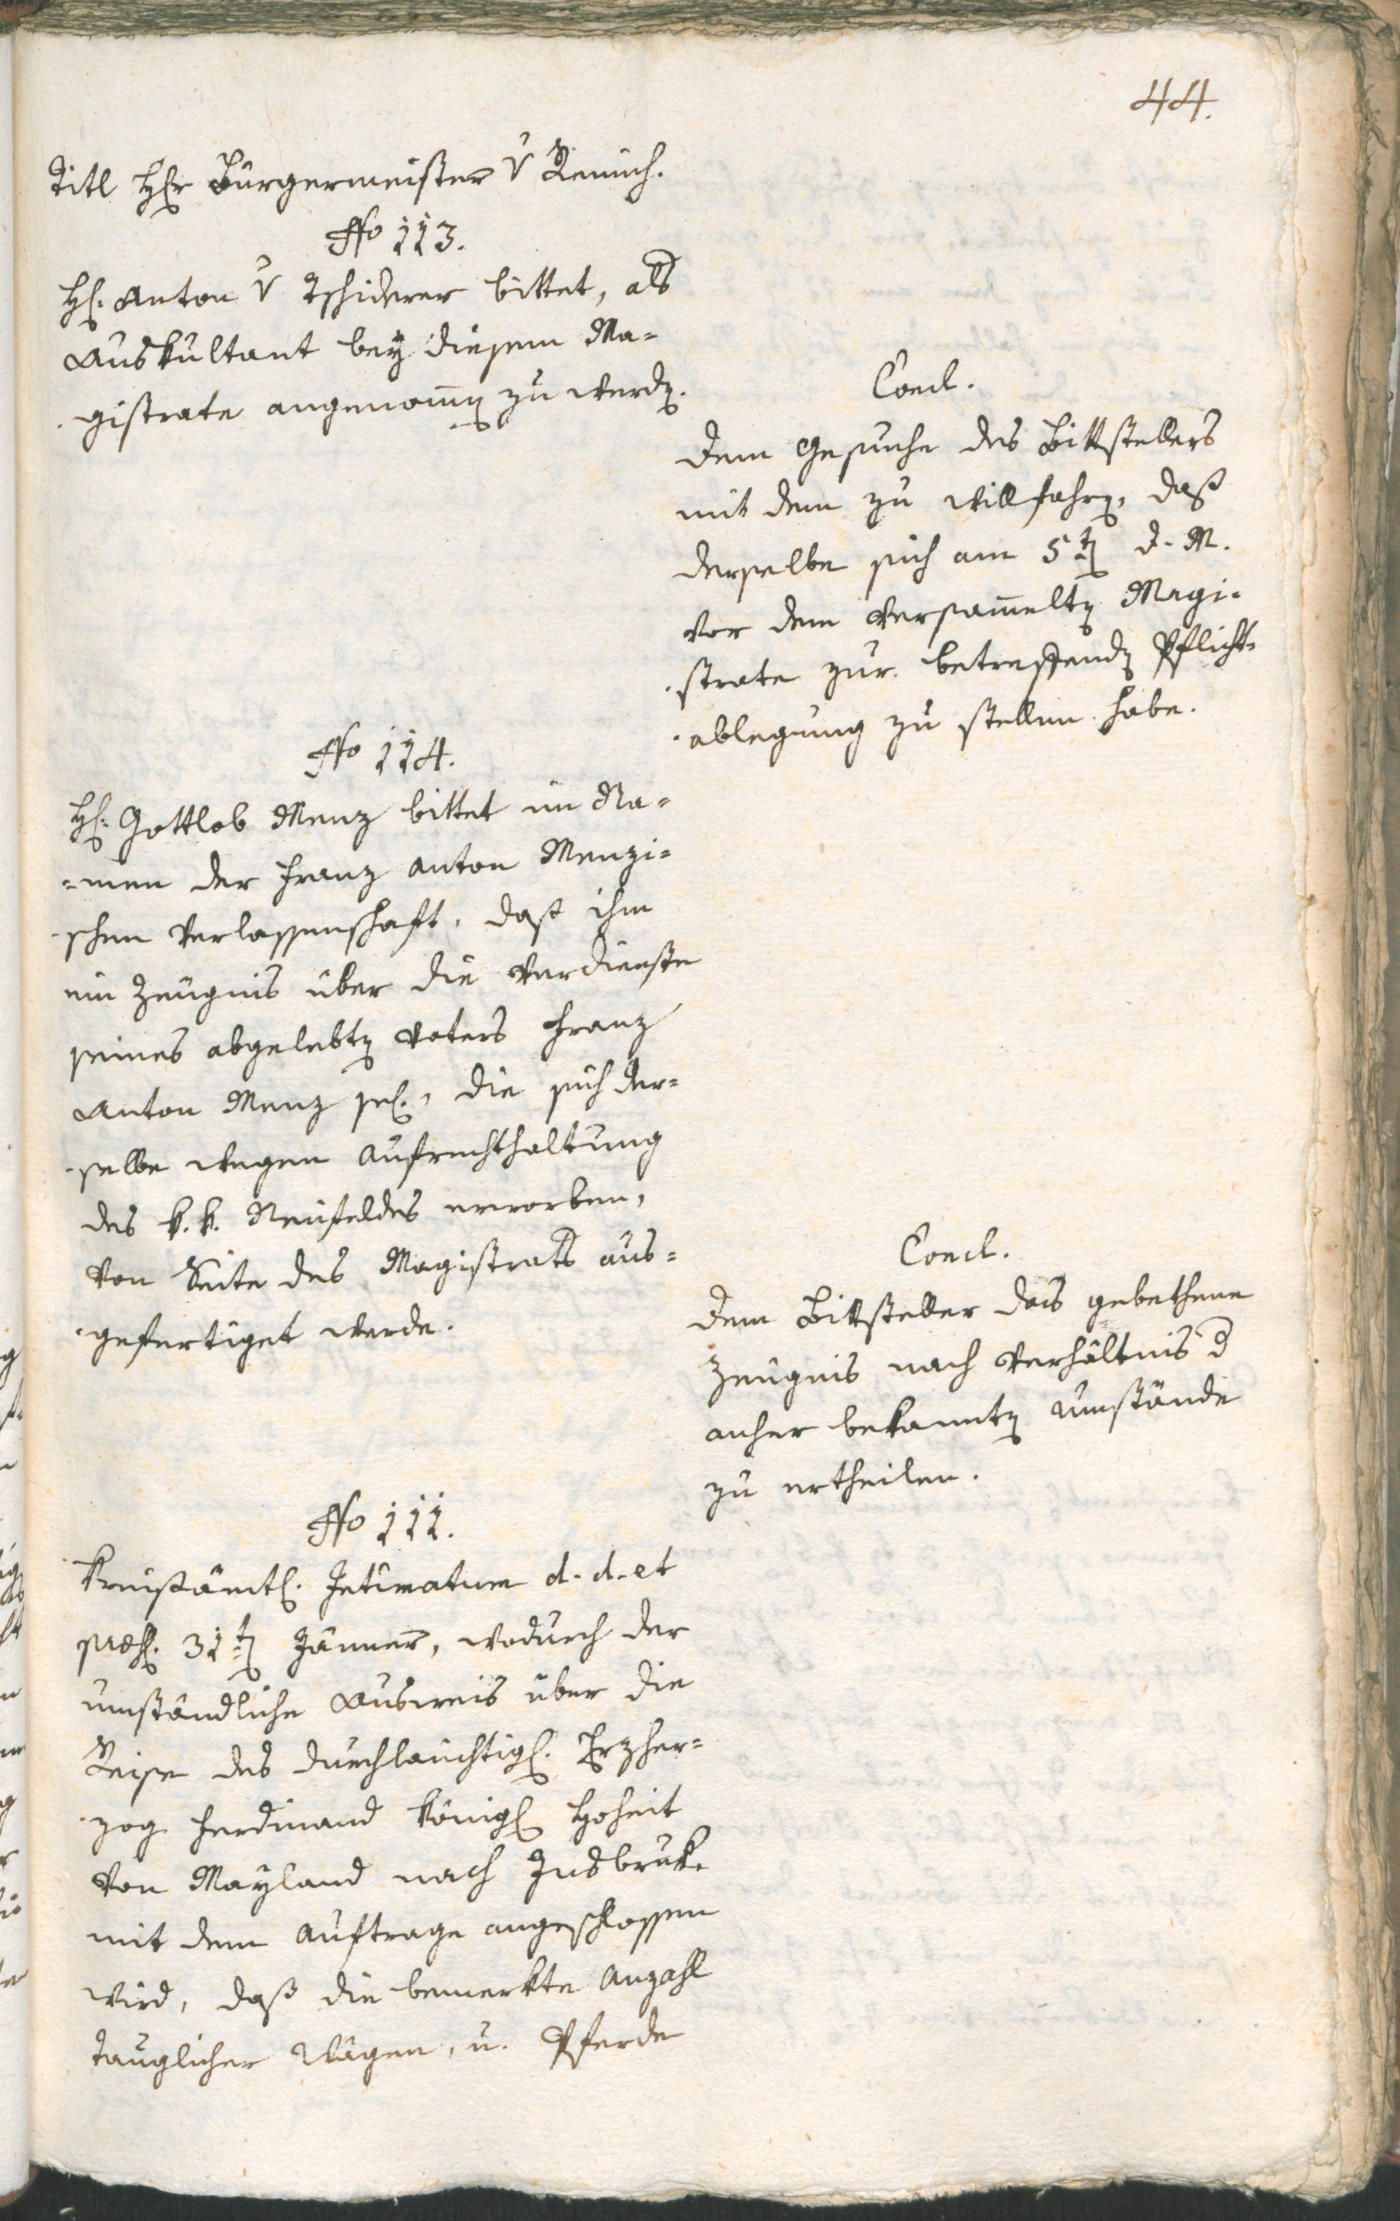 44.
Titl H͞r Bürgermeister v Remich.
No 113.
H. Anton v Tschiderer bittet, als
Auskultant bey diesem Ma-
gistrate angenom̄en zu werden.
Concl.
Dem Gesuche des Bittstellers
mit dem zu willfahren, daß
derselbe sich am 5ten d. M.
vor dem versam̄elten Magi-
strate zur betreffenden Pflicht-
ablegung zu stellen habe.
No 114.
H. Gottlob Menz bittet im Na-
men der Franz Anton Menzi-
schen Verlassenschaft, daß ihm
ein Zeugnis über die Verdienste
seines abgelebten Vaters Franz
Anton Menz sel., die sich der-
selbe wegen Aufrechthaltung
des k. k. Neufeldes erworben,
von Seite des Magistrats aus-
gefertiget werde.
Concl.
Dem Bittsteller das gebethene
Zeugnis nach Verhältnis d
anher bekannten Umstände
zu ertheilen.
No 111.
Kreisämtl. Intimatum d. d. et
præs. 31ten Jänner, wodurch der
umständliche Ausweis über die
Reise des durchlauchtigst. Erzher-
zog Ferdinand königl Hoheit
von Mayland nach Insbruk
mit dem Auftrage angeschlossen
wird, daß die bemerkte Anzahl
tauglicher Wägen, u. Pferde